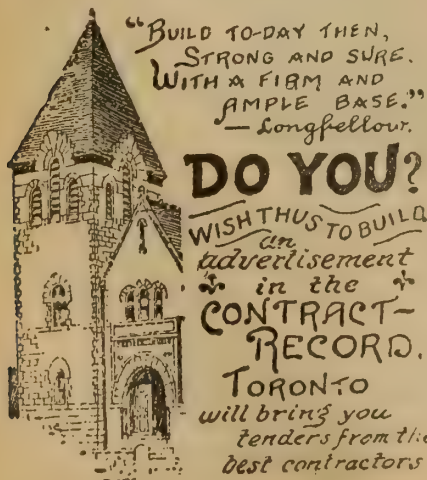 “BUILD TO-DAY THEN,
STRONG AND SURE.
WITH A FIRM AND
AMPLE BASE.”
— Longfellow.
DO YOU?
WISH THUS TO BUILD
an
advertisement
in the
CONTRACT–
RECORD.
TORONTO
will bring you
tenders from the
best contractors